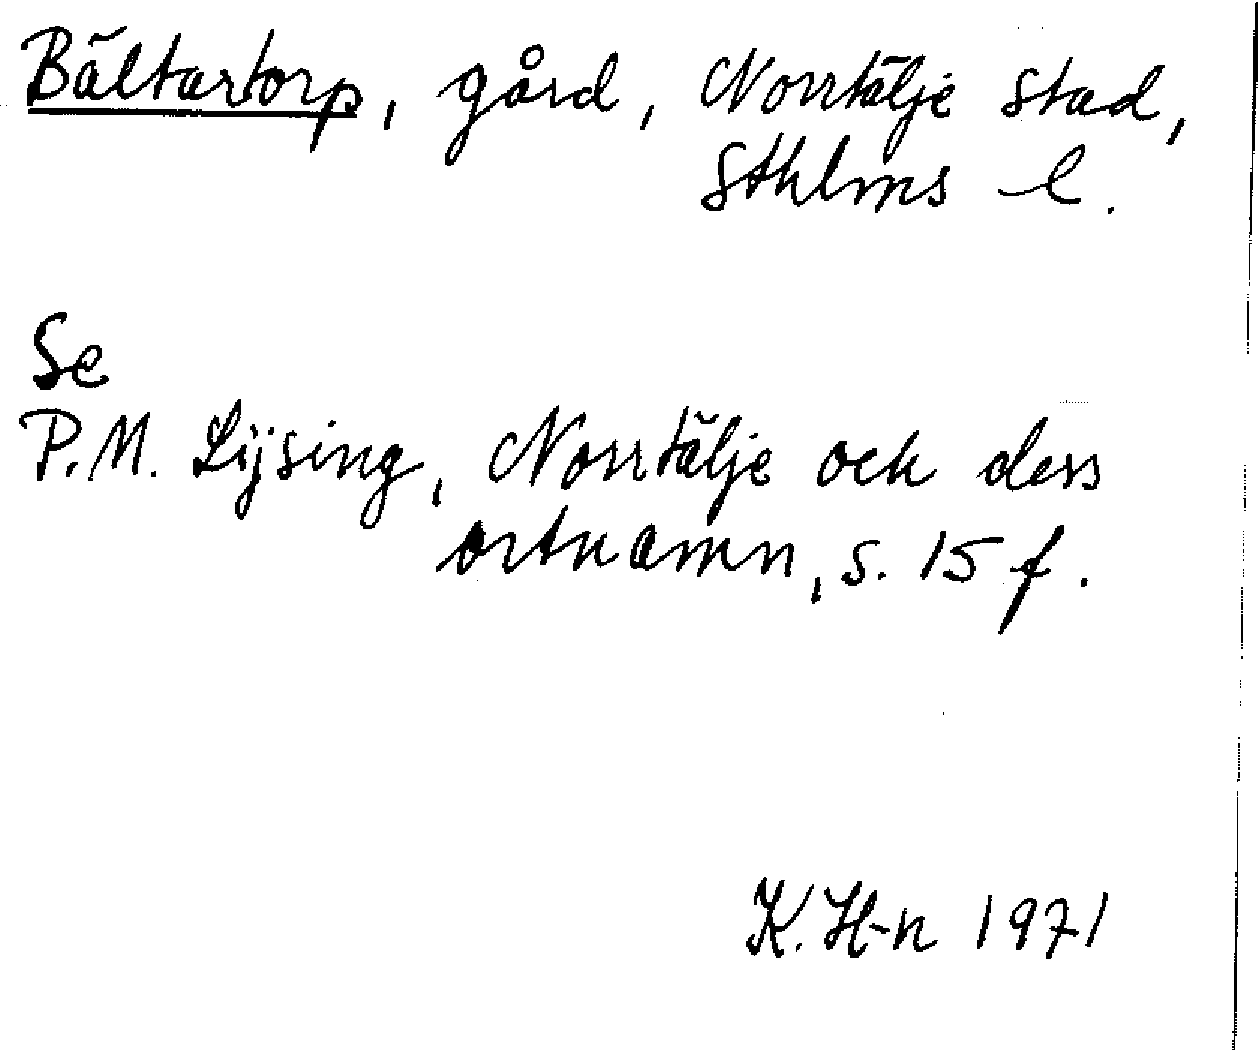 Bältartorp, gård, Norrtälje stad,
Sthlms l.
Se
P.M. Lijsing, Norrtälje och dess
ortnamn, s. 15 f.
K. H-n 1971